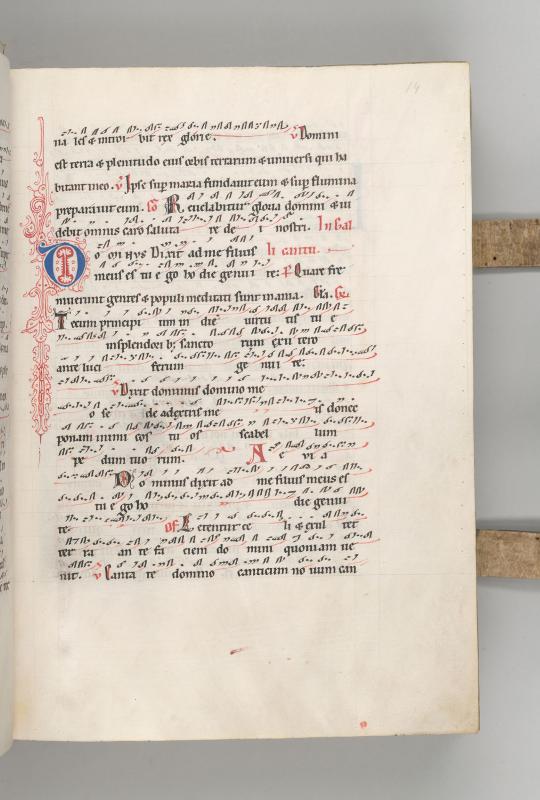 14
na les & introi bit rex glorie. ℣ Domini
est terra & plenitudo eius orbis terrarum & universi qui ha
bitant in eo. ℣ Ipse sup maria fundavit eum & sup flumina
preparavit eum. Co R evelabitur gloria domini & vi
debit omnis caro saluta re de i nostri. In gal
D o mi nvs Dixit ad me filius li cantu.
meus es tu e go ho die genui te: P Quare fre
muerunt gentes & populi meditati sunt inania.
T ecum principi um in die virtu tis tu e
in splendori b; sancto rum ex u tero
ante luci ferum ge nui te:
℣ Dixit dominus domino me
o se de adextris me is donec
ponam inimi cos tu os scabel lum
pe dum tuo rum. A e v i a
D o minus dixit ad me filius meus es
tu e go ho die genui
te. Of. L etentur ce li & exul tet
ter ra an te fa ciem do mini quoniam ve
nit. ℣ Canta te domino canticum no vum can